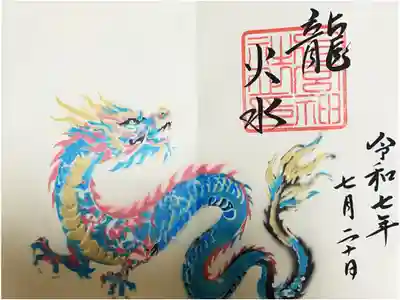 龍
火水
令和七年
七月二十日